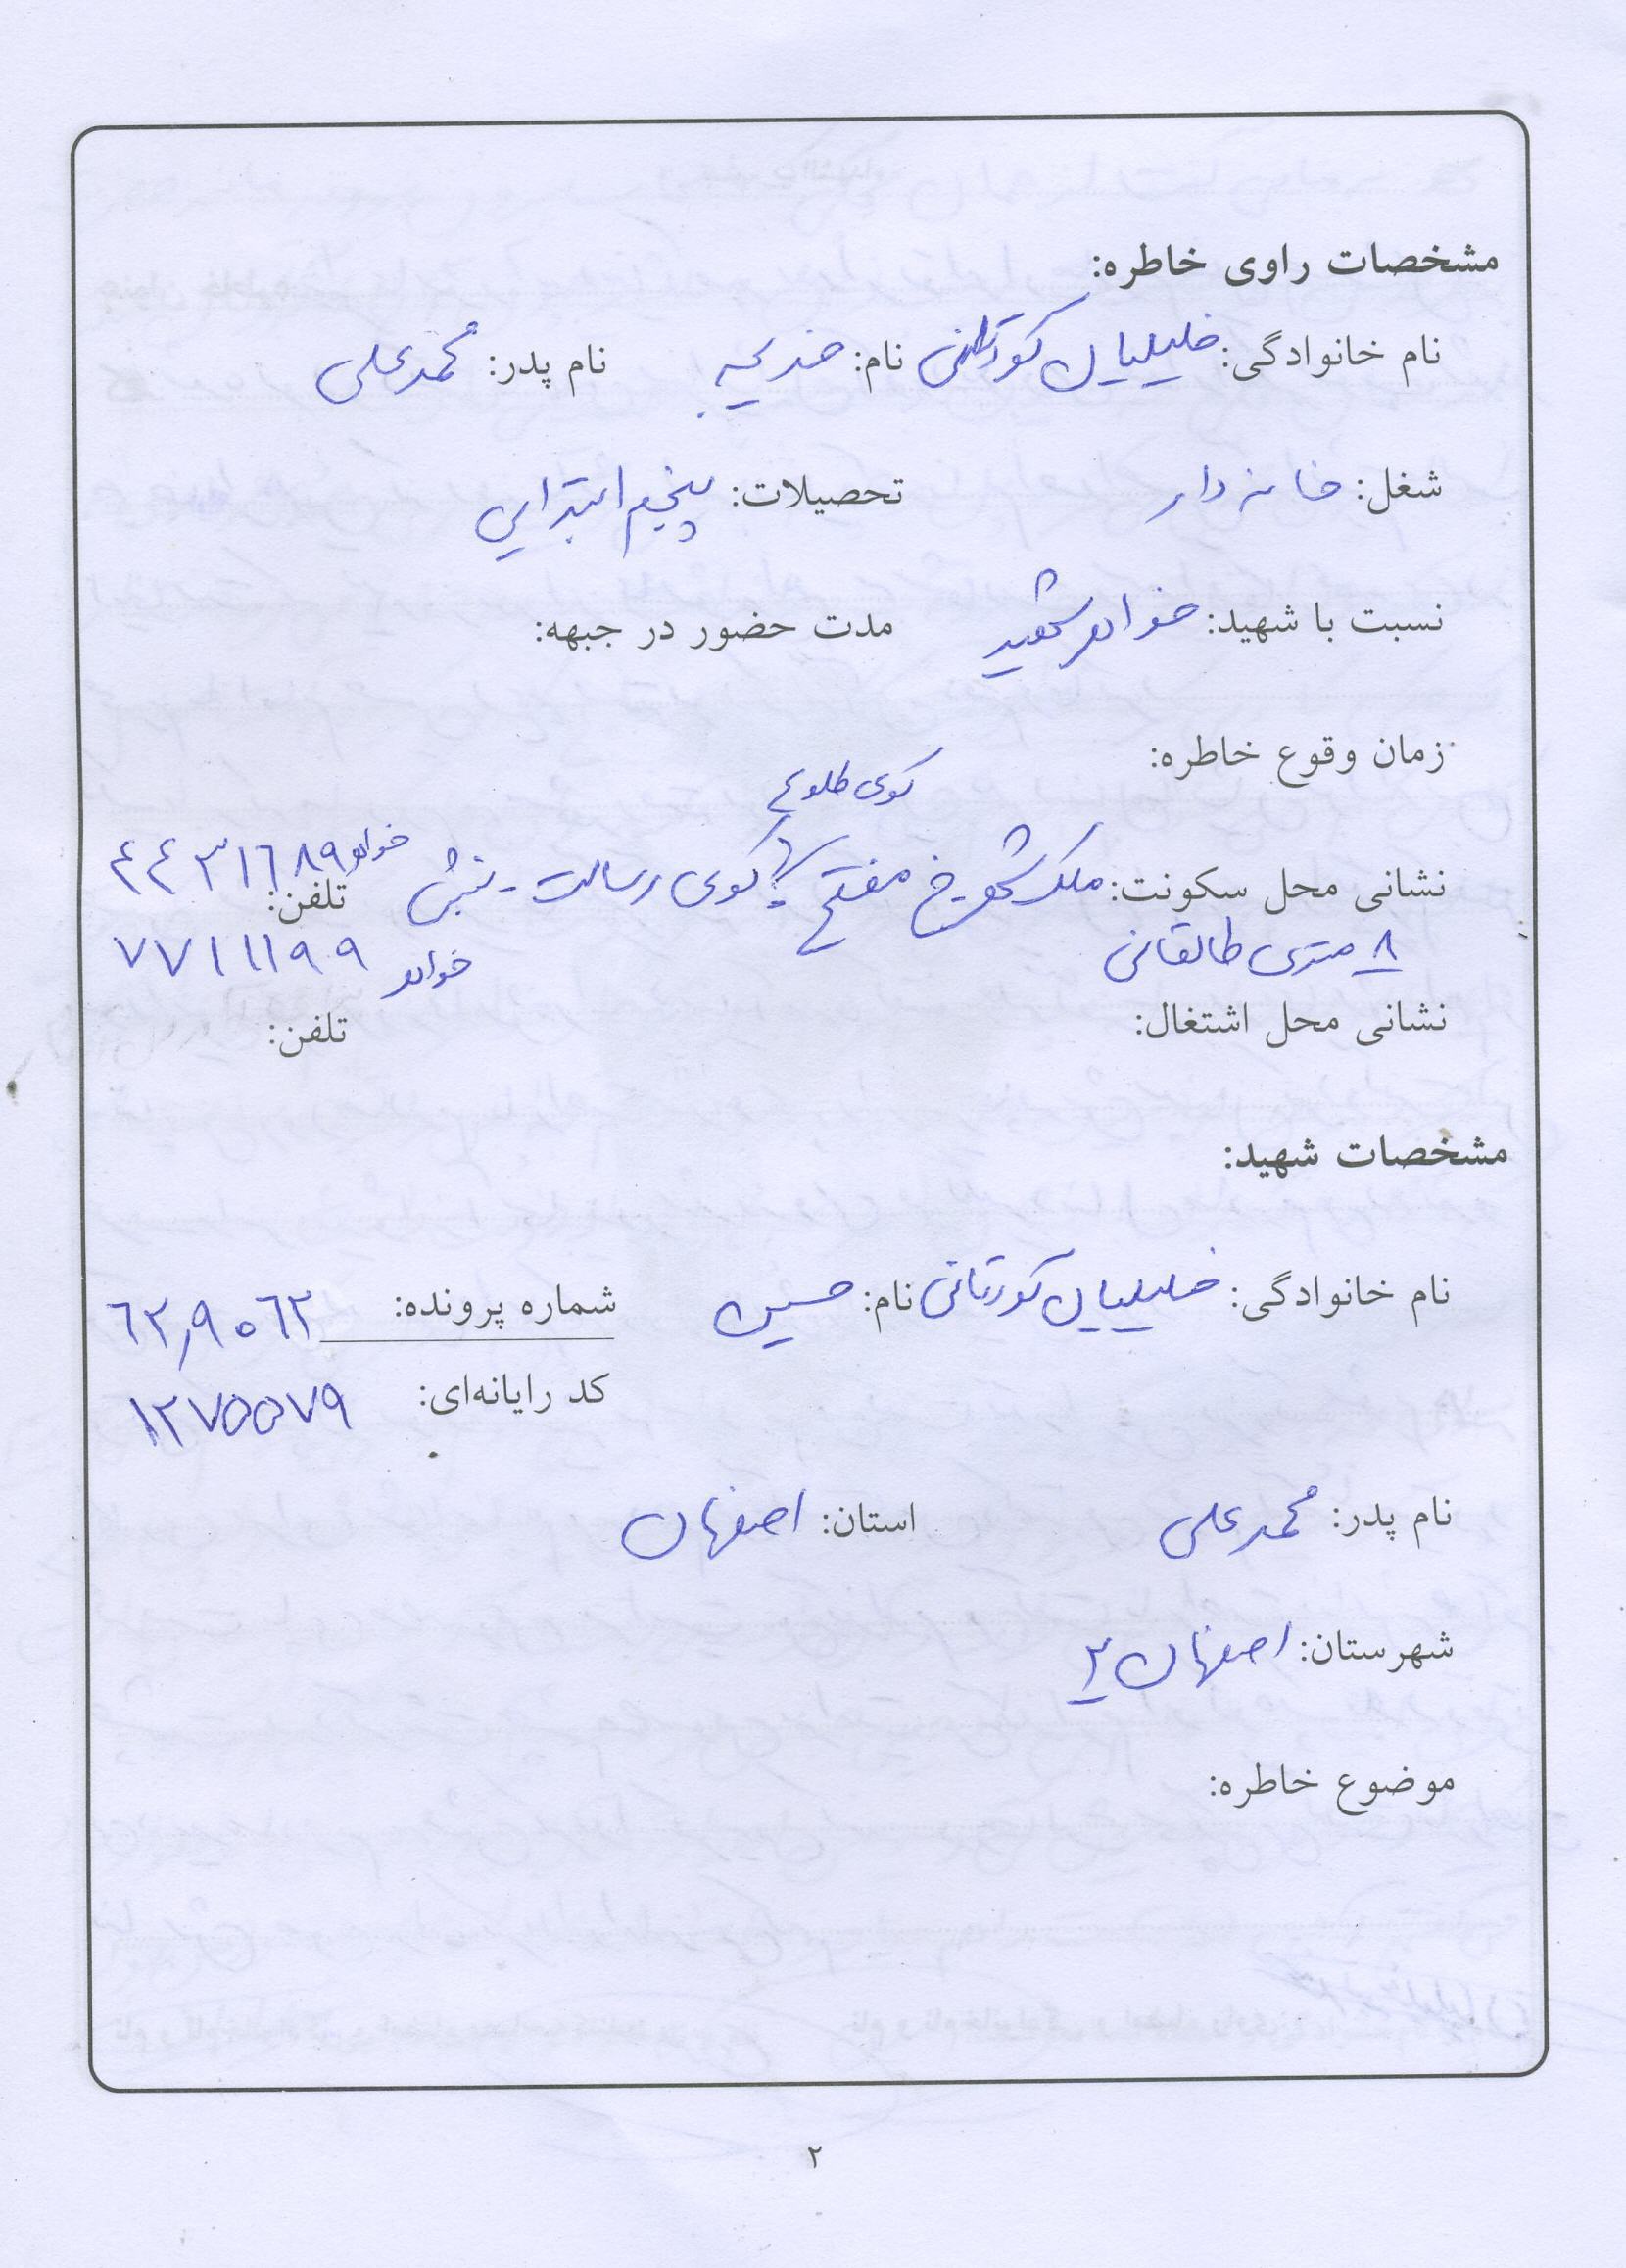 مشخصات راوی خاطره:
نام خانوادگی: خلیلیان کورتانی نام: خدیجه نام پدر: محمدعلی
شغل: خانه دار تحصیلات: پنجم ابتدایی
نسبت با شهید: خواهر شهید مدت حضور در جبهه:
زمان وقوع خاطره:
کوی طلوع
نشانی محل سکونت: ملک شهر خ مفتح کوی رسالت - نبش تلفن: ٤٤٣١٦٨٩ خواهر
٨ متری طالقانی خواهر ٧٧١١١٩٩
نشانی محل اشتغال: تلفن:
مشخصات شهید:
نام خانوادگی: خلیلیان کورتانی نام: حسین شماره پرونده: ٦٢,٩٠٦٢
کد رایانه‌ای: ١٢٧٥٥٧٩
نام پدر: محمدعلی استان: اصفهان
شهرستان: اصفهان ٢
موضوع خاطره:
٢